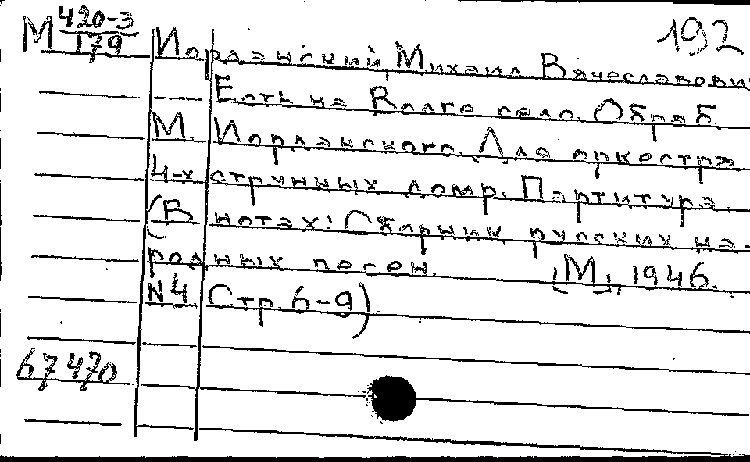 М 420-3/179
192
Иорданский, Михаил Вячеславович
Есть на Волге село. Обраб.
М. Иорданского. Для оркестра
4-х струнных домр. Партитура.
(В нотах: Сборник русских на-
родных песен. [М], 1946.
N4 Стр. 6-9)
67470